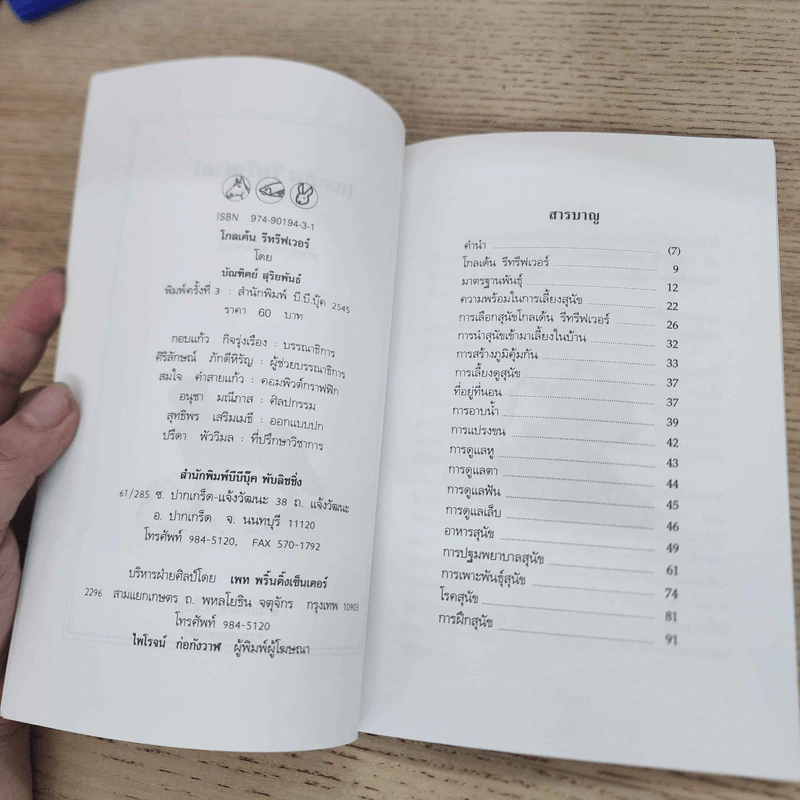 ISBN 974-90194-3-1
โกลเด้น รีทรีฟเวอร์
โดย
บัณฑิตย์ สุริยพันธ์
พิมพ์ครั้งที่ 3 : สำนักพิมพ์ บี.บี.บุ๊ค 2545
ราคา 60 บาท
กอบแก้ว กิจรุ่งเรือง : บรรณาธิการ
ศิริลักษณ์ ภักดีหิรัญ : ผู้ช่วยบรรณาธิการ
สมใจ คำสายแก้ว : คอมพิวต์กราฟฟิก
อนุชา มณีภาส : ศิลปกรรม
สุทธิพร เสริมเมธี : ออกแบบปก
ปรีดา พัววิมล : ที่ปรึกษาวิชาการ
สำนักพิมพ์บีบีบุ๊ค พับลิชชิ่ง
61/285 ซ. ปากเกร็ด-แจ้งวัฒนะ 38 ถ. แจ้งวัฒนะ
อ. ปากเกร็ด จ. นนทบุรี 11120
โทรศัพท์ 984-5120, FAX 570-1792
บริหารฝ่ายศิลป์โดย เพท พริ้นติ้งเซ็นเตอร์
2296 สามแยกเกษตร ถ. พหลโยธิน จตุจักร กรุงเทพ 10903
โทรศัพท์ 984-5120
ไพโรจน์ ก่อกังวาฬ ผู้พิมพ์ผู้โฆษณา
สารบาญ
คำนำ (7)
โกลเด้น รีทรีฟเวอร์ 9
มาตรฐานพันธุ์ 12
ความพร้อมในการเลี้ยงสุนัข 22
การเลือกสุนัขโกลเด้น รีทรีฟเวอร์ 26
การนำสุนัขเข้ามาเลี้ยงในบ้าน 32
การสร้างภูมิคุ้มกัน 33
การเลี้ยงดูสุนัข 37
ที่อยู่ที่นอน 37
การอาบน้ำ 39
การแปรงขน 42
การดูแลหู 43
การดูแลตา 44
การดูแลฟัน 45
การดูแลเล็บ 46
อาหารสุนัข 49
การปฐมพยาบาลสุนัข 61
การเพาะพันธุ์สุนัข 74
โรคสุนัข 81
การฝึกสุนัข 91